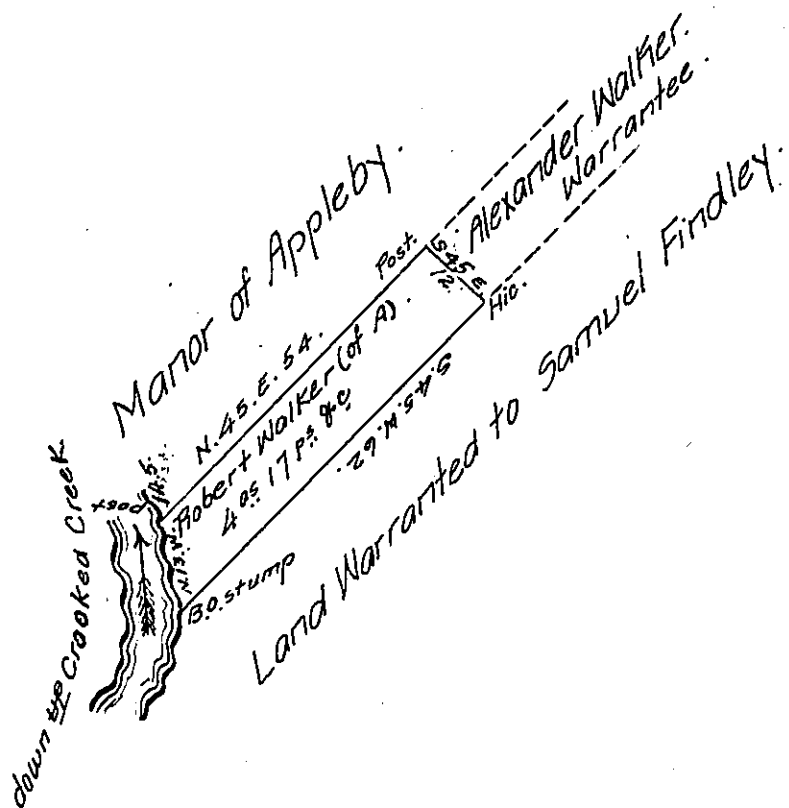 Manor of Appleby.
Alexander Walker.
Warrantee.
Post.
S 45 E
12.
Hic.
N. 45. E. 54.
Robert Walker (of A).
4 as 17 Ps &c
S. 45. W. 62.
Land Warranted to Samuel Findley.
post
N. 13. W.
B.O. stump
down the Crooked Creek.